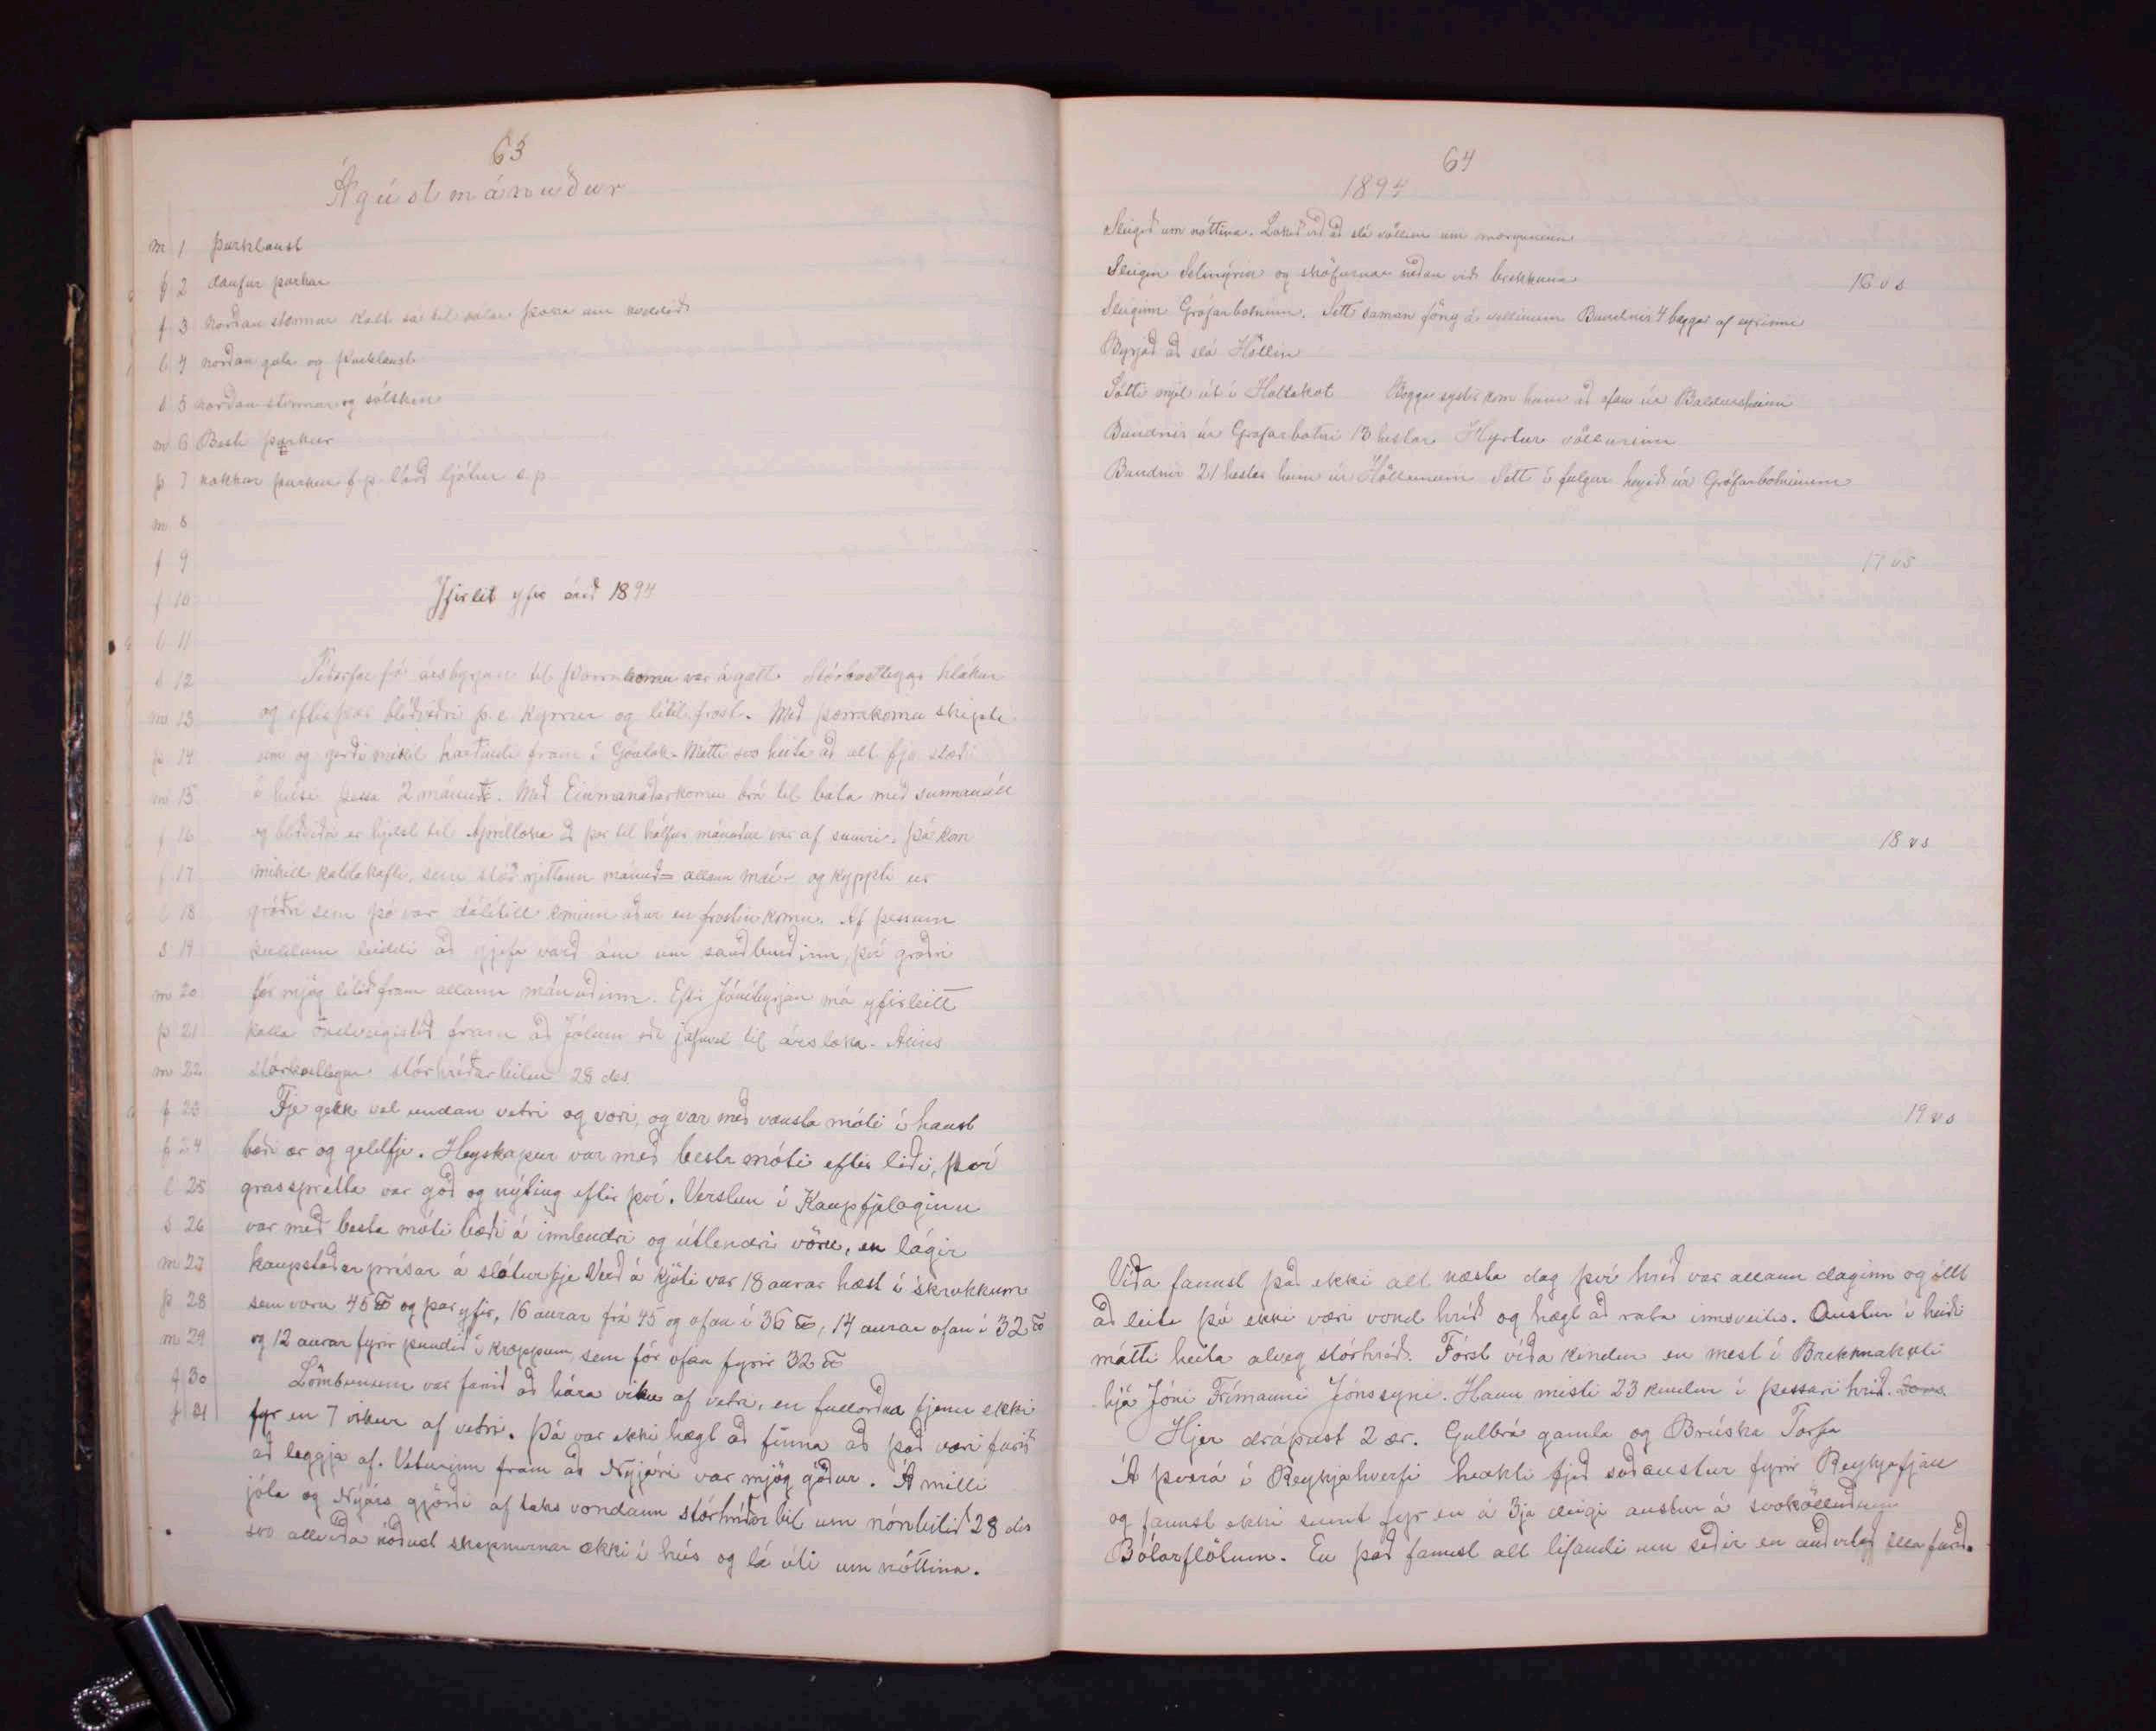 63
Ágústmánuður
m 1 þurklaust
f 2 daufur þurkur
f 3 norðan stormur kalt sá til sólar þoka um kveldið
l 4 norðan gola og þurklaust
s 5 norðan stormur og sólskin
m 6 Besti þurkur
þ 7 nokkur þurkur f.p. Veð ljótur s.p
m 8
f 9
f 10
Yfirlit yfir árið 1894
l 11
s 12 Tíðarfar frá ársbyrjun til Þorrakomu var ágætt. Stórkostlegar hlákur
m 13 og eftir það blíðviðri þ.e. kyrrur og lítil frost. Með þorrakomu skipti
þ 14 um og gerði mikil harðindi fram í Góulok. Mátti svo heita að alt fje stæði
m 15 í húsi þessa 2 mánuði. Með Einmánaðarkomu brá til bata með sunnanátt
f 16 og blíðviðri er hjelst til Aprílloka þar til hálfur mánuður var af sumri. Þá kom
f 17 mikill kuldakafli, sem stóð rjettann mánuð = allann maí og kyppti úr
l 18 gróðri sem þó var dálítill kominn áður en frostin komu. Af þessum
s 19 kuldum leiddi að gjefa varð ám um sauðburðinn, því gróðri
m 20 fór mjög lítið fram allann mánuðinn. Eftir Júníbyrjun má yfirleitt
þ 21 kalla öndvegistíð fram að Jólum eða jafnvel til ársloka. Aeins
m 22 stórkostlegur stórhríðarbilur 28 des.
f 23 Fje gekk vel undan vetri og vori, og var með vænsta móti í haust
f 24 bæði ær og geldfje. Heyskapur var með besta móti eftir liði, því
l 25 grasspretta var góð og nýting eftir því. Verslun í Kaupfjelaginu
s 26 var með besta móti bæði á innlendri og útlendri vöru, en lágir
m 27 kaupstaðarprísar á sláturfje Verð á kjöti var 18 aurar hæst í skrokkum
þ 28 sem voru 45 ℔ og þar yfir, 16 aurar frá 45 og ofan í 36 ℔, 14 aurar ofan í 32 ℔
m 29 og 12 aurar fyrir pundið í kroppum sem fór ofan fyrir 32 ℔
f 30 Lömbunum var farið að hára viku af vetri, en fullorðna fjenu ekki
f 31 fyr en 7 vikur af vetri. Þá var ekki hægt að finna að það væri farið
að leggja af. Veturinn fram að Nýjári var mjög góður. Á milli
jóla og Nýárs gjörði aftaks vondann stórhríðarbil um nónbilið 28 des
svo allvíða náðust skepnurnar ekki í hús og lá úti um nóttina.
64
1894
Slegið um nóttina. Lokið við að slá völlinn um morguninn
Slegin Selmýrin og sköfurnar neðan við brekkuna 16 vs
Sleginn Grófarbotninn. Sett saman föng á vellinum Bundnir 4 baggar af eyrinni
Byrjað að slá Höllin
Sótti mjöl út í Holtakot Bogga systir kom heim að ofan úr Baldursheimi
Bundnir úr Grofarbotni 13 hestar Hyrtur völlurinn
Bundnir 21 hestar heim úr Höllunum Sett í fúlgur heyið úr Grófarbotninum
17 vs
18 vs
19 vs
Víða fannst það ekki alt næsta dag því hríð var allann daginn og íllt
að leita þó ekki væri vond hríð og hægt að rata innsveitis. Austur í heiði
mátti heita alveg stórhríð. Fórst víða kindur en mest í Brekknakoti
hjá Jóni Frímanni Jónssyni. Hann misti 23 kindur í þessari hríð.
Hjer drápust 2 ær. Gulbrá gamla og Brúska Torfa
Á Þverá í Reykjahverfi hrakti fjeð suðaustur fyrir Reykjafjall
og fannst ekki sumt fyr en á 3ja degi austur á svokölluðum
Bótarflötum. En það fannst alt lifandi um síðir en auðvitað illa farið.